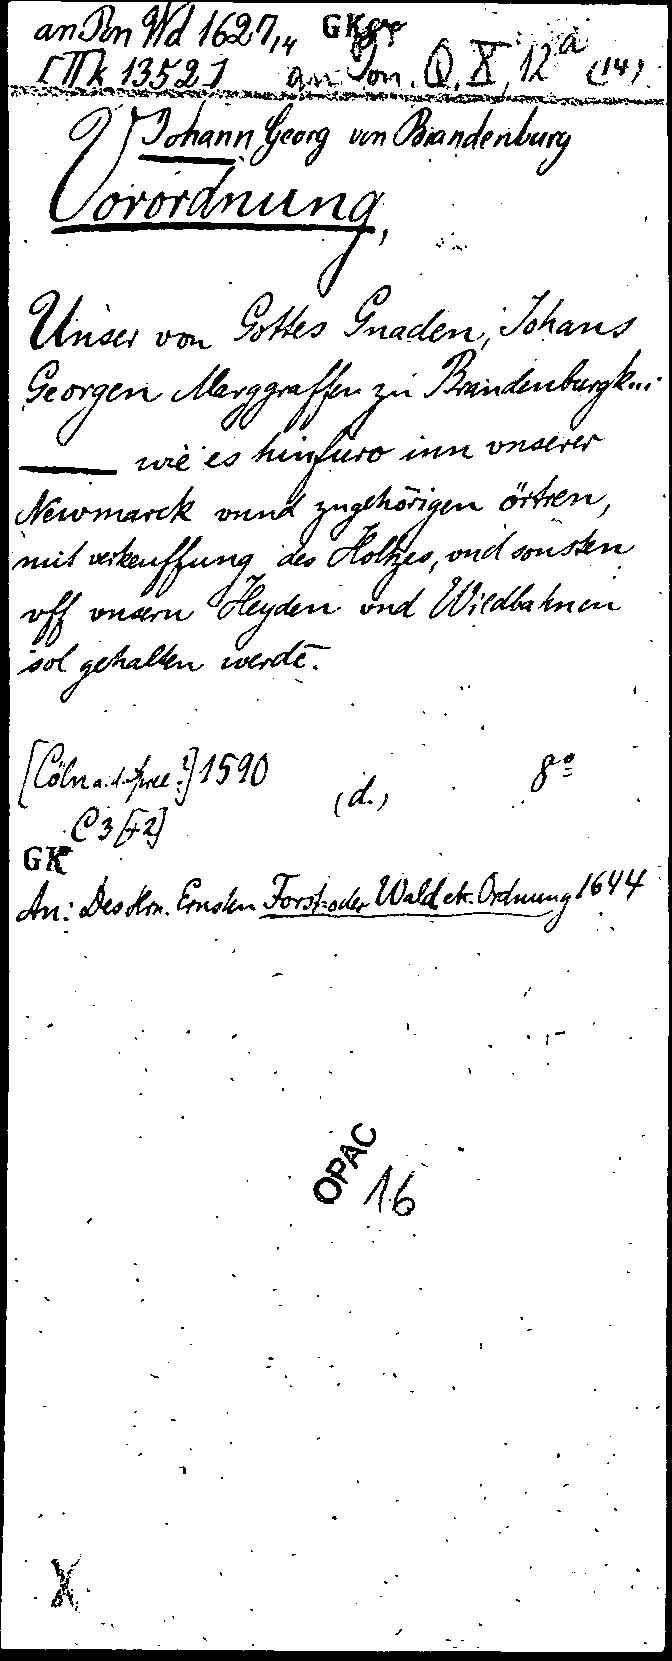 an Pon Wd 1627,14 GK
[IIk 1352] an Pon. Q. X, 12a (14)
Johann Georg von Brandenburg
Verordnung,
Unser von Gottes Gnaden, Johans
Georgen Marggraffen zu Brandenburgk...
—— wie es hinfuro inn vnserer
Newmarck vnnd zugehörigen örtren,
mit verkeuffung des Holtzes, vnd sonsten
vff vnsern Heyden vnd Wildbahnen
sol gehalten werdē.
[Cöln a. d. Spree?] 1590 (d.) 8°
C 3 [+2]
GK
An: Des Hrn. Ernsten Forst- oder Wald etc. Ordnung 1644
OPAC
16
X